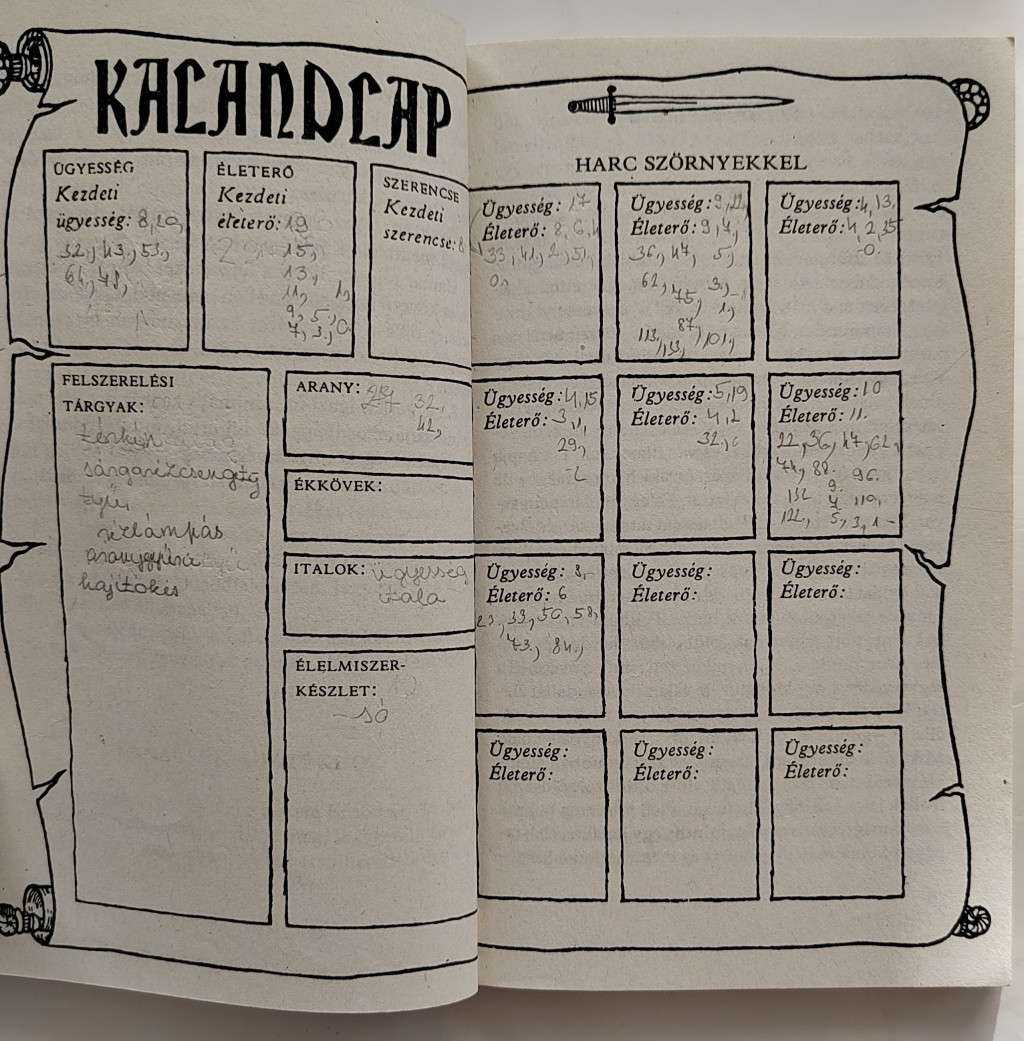 KALANDLAP
ÜGYESSÉG
Kezdeti
ügyesség: 8,20,
32, 43, 53,
64, 48,
ÉLETERŐ
Kezdeti
életerő: 19
15,
13,
11, 1,
9, 5,
7, 3, 0
SZERENCSE
Kezdeti
szerencse: 8
FELSZERELÉSI
TÁRGYAK:
térkép
sárgarézcsengettyű
rézlámpás
hajítókés
ARANY: 27 32,
42,
ÉKKÖVEK:
ITALOK: ügyesség
itala
ÉLELMISZER-
KÉSZLET:
- só
HARC SZÖRNYEKKEL
Ügyesség: 17
Életerő: 8, 6, 4
33, 41, 2, 51,
0,
Ügyesség: 9, 22,
Életerő: 9, 7,
36, 47, 5,
62, 3,
75, 1,
87, 101,
113, 133,
Ügyesség: 4, 13,
Életerő: 4, 2, 35
-0.
Ügyesség: 4, 15
Életerő: 3, 1,
29,
-2
Ügyesség: 5, 19
Életerő: 4, 2
32, 0
Ügyesség: 10
Életerő: 11.
22, 36, 47, 62,
74, 88. 96.
9.
132 7 110,
122, 5, 3, 1 -
Ügyesség: 8,
Életerő: 6
23, 33, 50, 58,
73, 84,
Ügyesség:
Életerő:
Ügyesség:
Életerő:
Ügyesség:
Életerő:
Ügyesség:
Életerő:
Ügyesség:
Életerő: